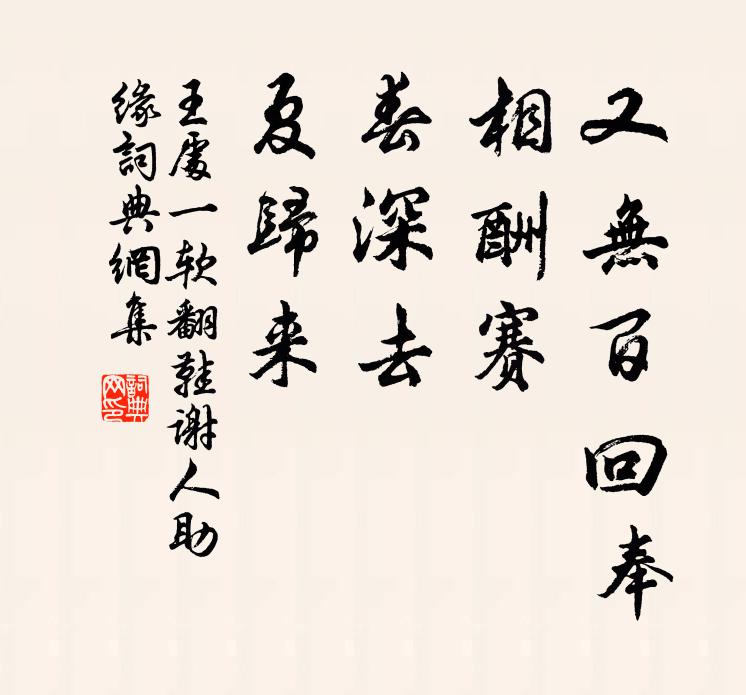 又無百回奉
相酬賽
春深去
夏歸来
王處一软翻鞋谢人助
緣詞典網集
詞典网印